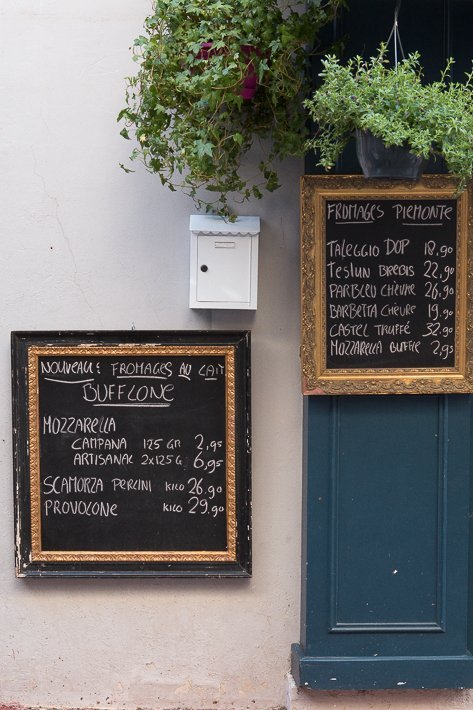 FROMAGES PIEMONTE
TALEGGIO DOP 18,90
TESTUN BREBIS 22,90
PARBLEU CHÈVRE 26,90
BARBETTA CHÈVRE 19,90
CASTEL TRUFFÉ 32,90
MOZZARELLA BUFFLE 2,95
NOUVEAU : FROMAGES AU LAIT
BUFFLONE
MOZZARELLA
CAMPANA 125 GR 2,95
ARTISANAL 2x125 G 6,95
SCAMORZA PERLINI KILO 26,90
PROVOLONE KILO 29,90